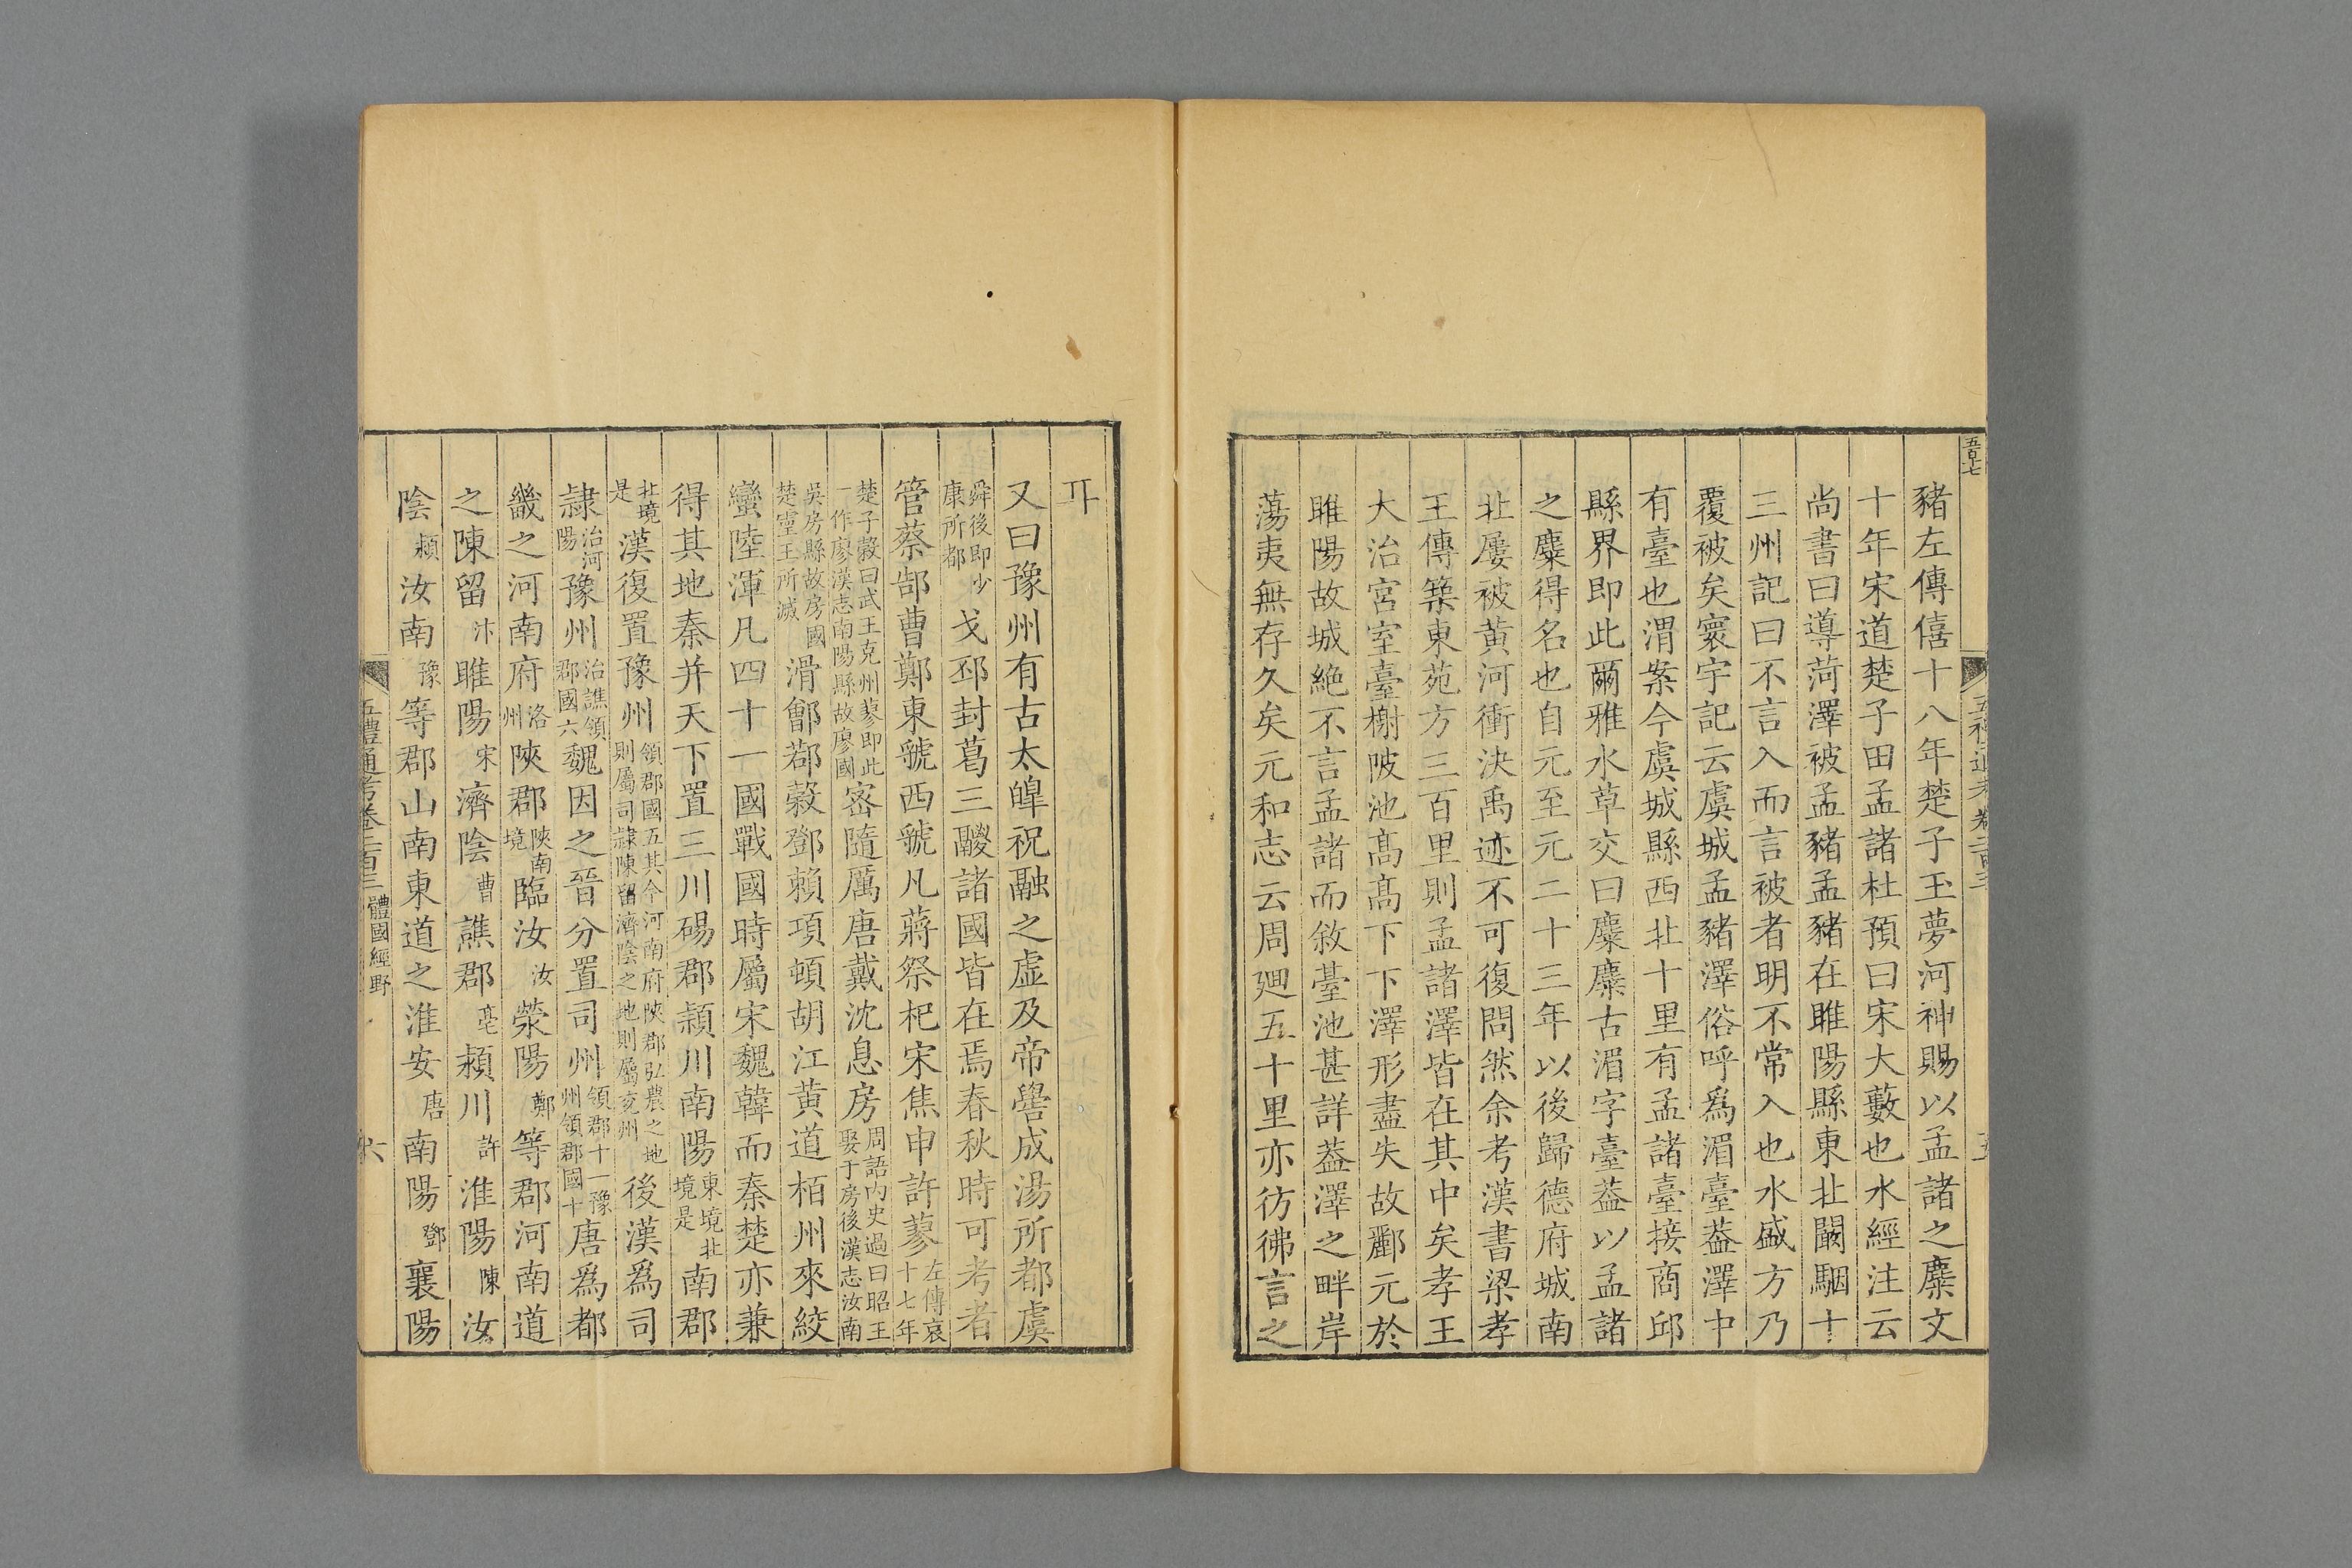 五百七
豬左傳僖十八年楚子玉夢河神賜以孟諸之麋文
十年宋道楚子田孟諸杜預曰宋大藪也水經注云
尚書曰導菏澤被孟豬孟豬在睢陽縣東北闞駰十
三州記曰不言入而言被者明不常入也水盛方乃
覆被矣寰宇記云虞城孟豬澤俗呼為湄臺葢澤中
有臺也渭案今虞城縣西北十里有孟諸臺接商邱
縣界即此爾雅水草交曰麋麋古湄字臺葢以孟諸
之麋得名也自元至元二十三年以後歸德府城南
北屢被黃河衝決禹迹不可復問然余考漢書梁孝
王傳築東苑方三百里則孟諸澤皆在其中矣孝王
大治宮室臺榭陂池高高下下澤形盡失故酈元於
睢陽故城絶不言孟諸而敘臺池甚詳葢澤之畔岸
蕩夷無存久矣元和志云周廻五十里亦彷彿言之
耳
又曰豫州有古太皡祝融之虛及帝嚳成湯所都虞
舜後即少康所都戈邳封葛三鬷諸國皆在焉春秋時可考者
管蔡郜曹鄭東虢西虢凡蔣祭杞宋焦申許蓼左傳哀十七年
楚子穀曰武王克州蓼即此一作廖漢志南陽縣故廖國宻隨厲唐戴沈息房周語内史過曰昭王娶于房後漢志汝南
吳房縣故房國楚靈王所滅滑鄶鄀穀鄧賴項頓胡江黃道栢州來絞
蠻陸渾凡四十一國戰國時屬宋魏韓而秦楚亦兼
得其地秦并天下置三川碭郡潁川南陽東境北境是南郡
北境是漢復置豫州領郡國五其今河南府陝郡弘農之地則屬司隷陳留濟陰之地則屬兗州後漢爲司
隷治河陽豫州治譙領郡國六魏因之晉分置司州領郡十一豫州領郡國十唐爲都
畿之河南府洛州陝郡陝南境臨汝汝滎陽鄭等郡河南道
之陳留汴睢陽宋濟陰曹譙郡亳潁川許淮陽陳汝
陰潁汝南豫等郡山南東道之淮安唐南陽鄧襄陽
五禮通考卷二百三 體國經野 六